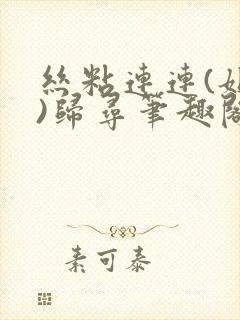 絲粘連連(
)歸尋筆趣閣
素可泰